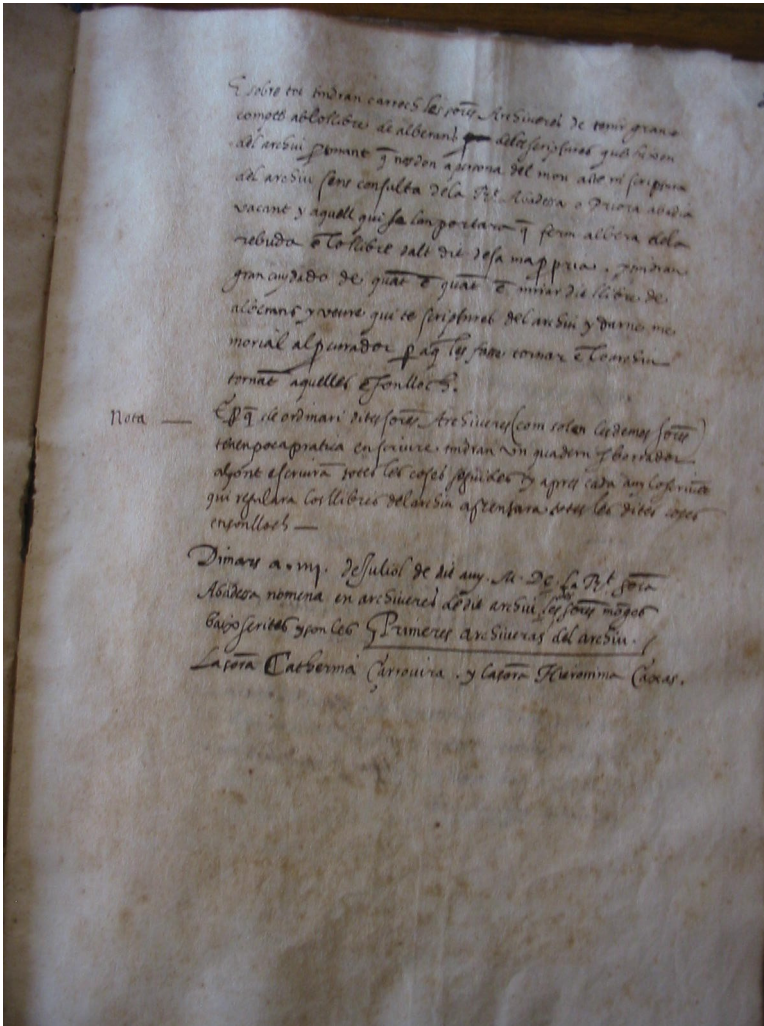 E sobre tot tindran carrech les sores Archiveres de tenir gran
compte ab lo llibre de albarans de les scriptures que s
del archiu p̄mant q̄ no s don a persona del mon alte ni scriptura
del archiu sens consulta de la R.t Abadessa o Priora abadia
vacant y aquell qui se lan portara q̄ ferm albera de la
rebuda ē lo llibre dalt dit de sa ma ppria. y tindran
gran cuydado de quāt ē quāt ē mirar dit llibre de
alberans y veure qui te scriptures del archiu y darne me
morial al pcurador p̄ aq̄ les fasse tornar ē lo archiu
tornāt aquelles ē son lloch.
Nota — E p̄ q̄ de ordinari dites sōres Archiveres (com solen les demes sōres)
tenen poca pratica en scriure tindran un quadern y borrador
ahont escriurā totes les coses seguides y apres cada any lo
qui regulara los llibres del archiu assentara totes les dites coses
en son lloch —
Dimars a .VIII. de Juliol de dit any. M. DC. La R.t sōra
Abadessa nomena en archiveres de dit archiu les sōres mōges
baix scrites y son les Primeres archiveras del archiu.
La sōra Catherina Çarrovira. y la sōra Hieronima Caxas.